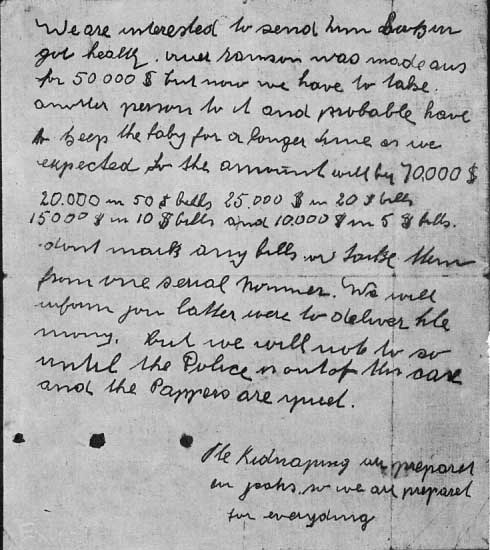 We are interested to send him back in
gut health. ouer ransom was made aus
for 50 000 $ but now we have to take
another person to it and probable have
to keep the baby for a longer time as we
expected. So the amount will by 70,000 $
20.000 in 50 $ bills 25.000 $ in 20 $ bills
15000 $ in 10 $ bills and 10.000 $ in 5 $ bills.
dont mark any bills. or tacke them
from one serial nommer. We will
inform you latter were to deliver the
mony. but we will not to so
until the Police is out of this case
and the Pappers are quiet.
The Kidnaping preparet
in jeahs. so we are preparet
for everyding